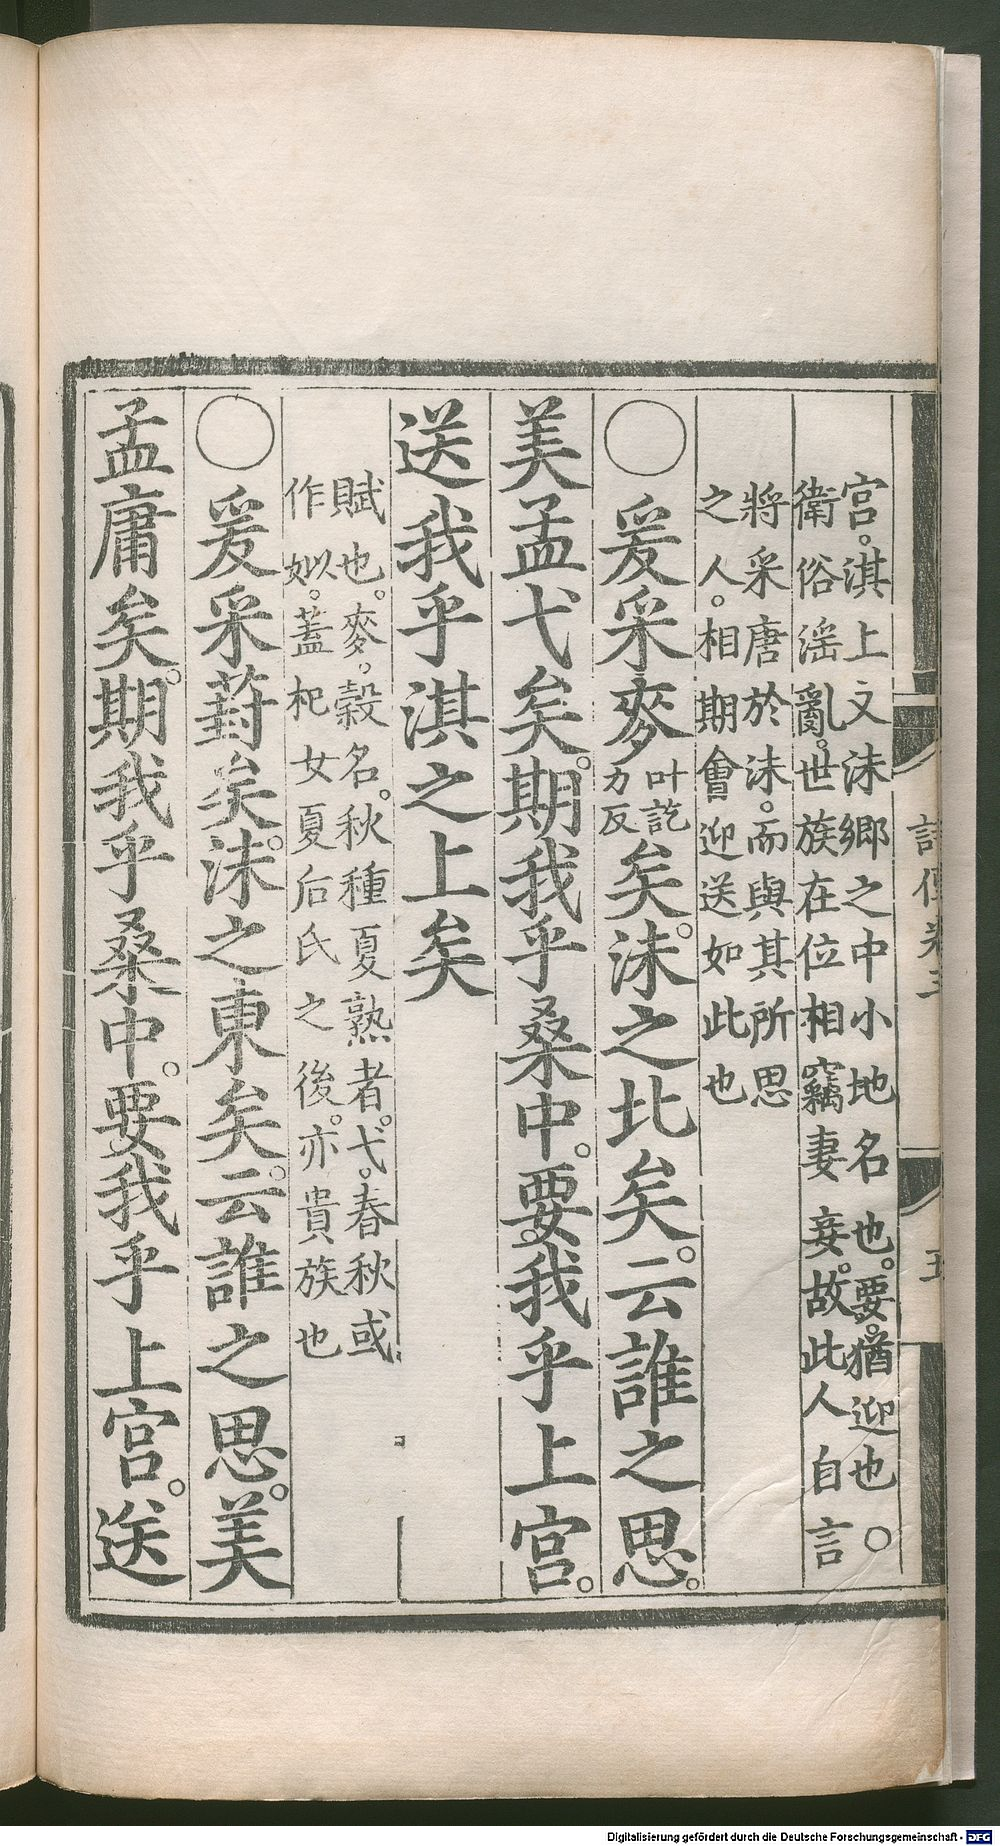 宮。淇上文沬鄉之中小地名也。要。猶迎也○
衛俗淫亂。世族在位相竊妻妾。故此人自言
將采唐於沬。而與其所思
之人。相期會迎送如此也
○爰采麥
叶訖
力反
矣。沬之北矣。云誰之思。
美孟弋矣。期我乎桑中。要我乎上宮。
送我乎淇之上矣
賦也。麥。穀名。秋種夏熟者。弋。春秋或
作姒。蓋杞女夏后氏之後。亦貴族也
○爰采葑矣。沬之東矣。云誰之思。美
孟庸矣。期我乎桑中。要我乎上宮。送
Digitalisierung gefördert durch die Deutsche Forschungsgemeinschaft - DFG